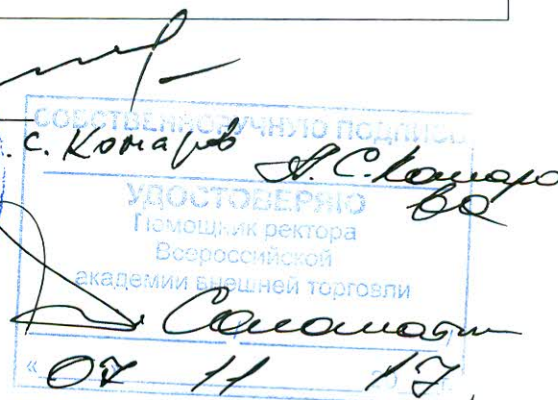 СОБСТВЕННОРУЧНУЮ ПОДПИСЬ
.с. Комаров
А.С. Комаро
ва
УДОСТОВЕРЯЮ
Помощник ректора
Всероссийской
академии внешней торговли
Соломатин
« 07 11 17